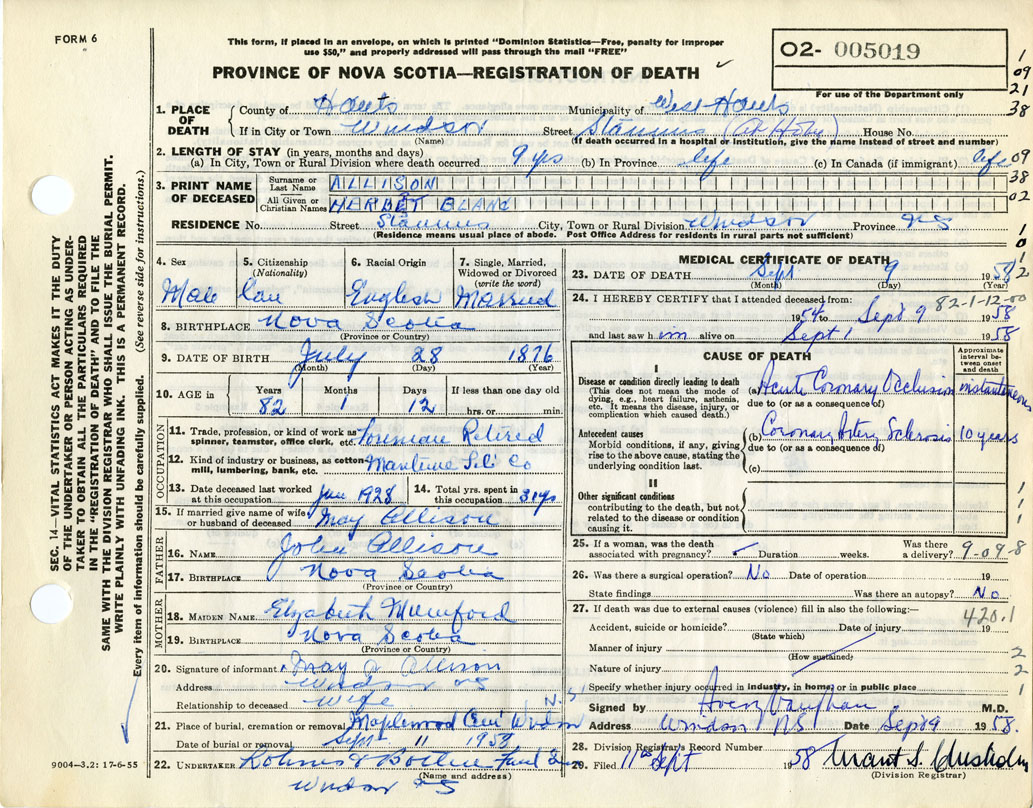 FORM 6
This form, if placed in an envelope, on which is printed "Dominion Statistics—Free, penalty for improper
use $50," and properly addressed will pass through the mail "FREE"
PROVINCE OF NOVA SCOTIA—REGISTRATION OF DEATH
02- 005019
For use of the Department only
1
09
21
38
09
38
02
1
0
1
2
SEC. 14—VITAL STATISTICS ACT MAKES IT THE DUTY
OF THE UNDERTAKER OR PERSON ACTING AS UNDER-
TAKER TO OBTAIN ALL THE PARTICULARS REQUIRED
IN THE "REGISTRATION OF DEATH" AND TO FILE THE
SAME WITH THE DIVISION REGISTRAR WHO SHALL ISSUE THE BURIAL PERMIT.
WRITE PLAINLY WITH UNFADING INK. THIS IS A PERMANENT RECORD.
Every item of information should be carefully supplied. (See reverse side for instructions.)
1. PLACE OF DEATH
County of Hants Municipality of West Hants
If in City or Town Windsor Street Stannus (At Home) House No.
(Name) (If death occurred in a hospital or institution, give the name instead of street and number)
2. LENGTH OF STAY (in years, months and days)
(a) In City, Town or Rural Division where death occurred 9 yrs (b) In Province life (c) In Canada (if immigrant) life
3. PRINT NAME OF DECEASED
Surname or Last Name ALLISON
All Given or Christian Names HERBET BLANC
RESIDENCE No. Street Stannus City, Town or Rural Division Windsor Province NS
(Residence means usual place of abode. Post Office Address for residents in rural parts not sufficient)
4. Sex 5. Citizenship (Nationality) 6. Racial Origin 7. Single, Married, Widowed or Divorced (write the word)
Male Can English Married
8. BIRTHPLACE Nova Scotia
(Province or Country)
9. DATE OF BIRTH July 28 1876
(Month) (Day) (Year)
10. AGE in Years Months Days If less than one day old
82 1 12 hrs. or min.
OCCUPATION
11. Trade, profession, or kind of work as
spinner, teamster, office clerk, etc. Foreman Retired
12. Kind of industry or business, as cotton
mill, lumbering, bank, etc. Maritime Co
13. Date deceased last worked
at this occupation Jan 1928
14. Total yrs. spent in
this occupation 31 yrs
15. If married give name of wife
or husband of deceased May Allison
FATHER
16. NAME John Allison
17. BIRTHPLACE Nova Scotia
(Province or Country)
MOTHER
18. MAIDEN NAME Elizabeth Mumford
19. BIRTHPLACE Nova Scotia
(Province or Country)
20. Signature of informant May A Allison
Address Windsor NS
Relationship to deceased Wife N.S.
21. Place of burial, cremation or removal Maplewood Cem Windsor
Date of burial or removal Sept 11 1958
22. UNDERTAKER
(Name and address)
Windsor NS
9004—3.2: 17-6-55
MEDICAL CERTIFICATE OF DEATH
23. DATE OF DEATH Sept 9 1958
(Month) (Day) (Year)
24. I HEREBY CERTIFY that I attended deceased from: 82-1-12-00
1954 to Sept 9 1958
and last saw him alive on Sept 1 1958
CAUSE OF DEATH
Approximate interval between onset and death
I
Disease or condition directly leading to death
(This does not mean the mode of
dying, e.g., heart failure, asthenia,
etc. It means the disease, injury, or
complication which caused death.)
(a) Acute Coronary Occlusion instantaneous
due to (or as a consequence of)
Antecedent causes
Morbid conditions, if any, giving
rise to the above cause, stating the
underlying condition last.
(b) Coronary Artery Sclerosis 10 years
due to (or as a consequence of)
(c)
II
Other significant conditions
contributing to the death, but not
related to the disease or condition
causing it.
1
1
1
25. If a woman, was the death
associated with pregnancy? Duration weeks. Was there
a delivery? 9-09-8
26. Was there a surgical operation? No Date of operation 19
State findings Was there an autopsy? No
27. If death was due to external causes (violence) fill in also the following:—
420.1
Accident, suicide or homicide? Date of injury 19
(State which)
Manner of injury 2
(How sustained)
Nature of injury 2
Specify whether injury occurred in industry, in home, or in public place 1
Signed by Avery Vaughan M.D.
Address Windsor NS Date Sept 9 1958.
28. Division Registrar's Record Number
29. Filed 11th Sept 1958 Grant S. Chisholm
(Division Registrar)